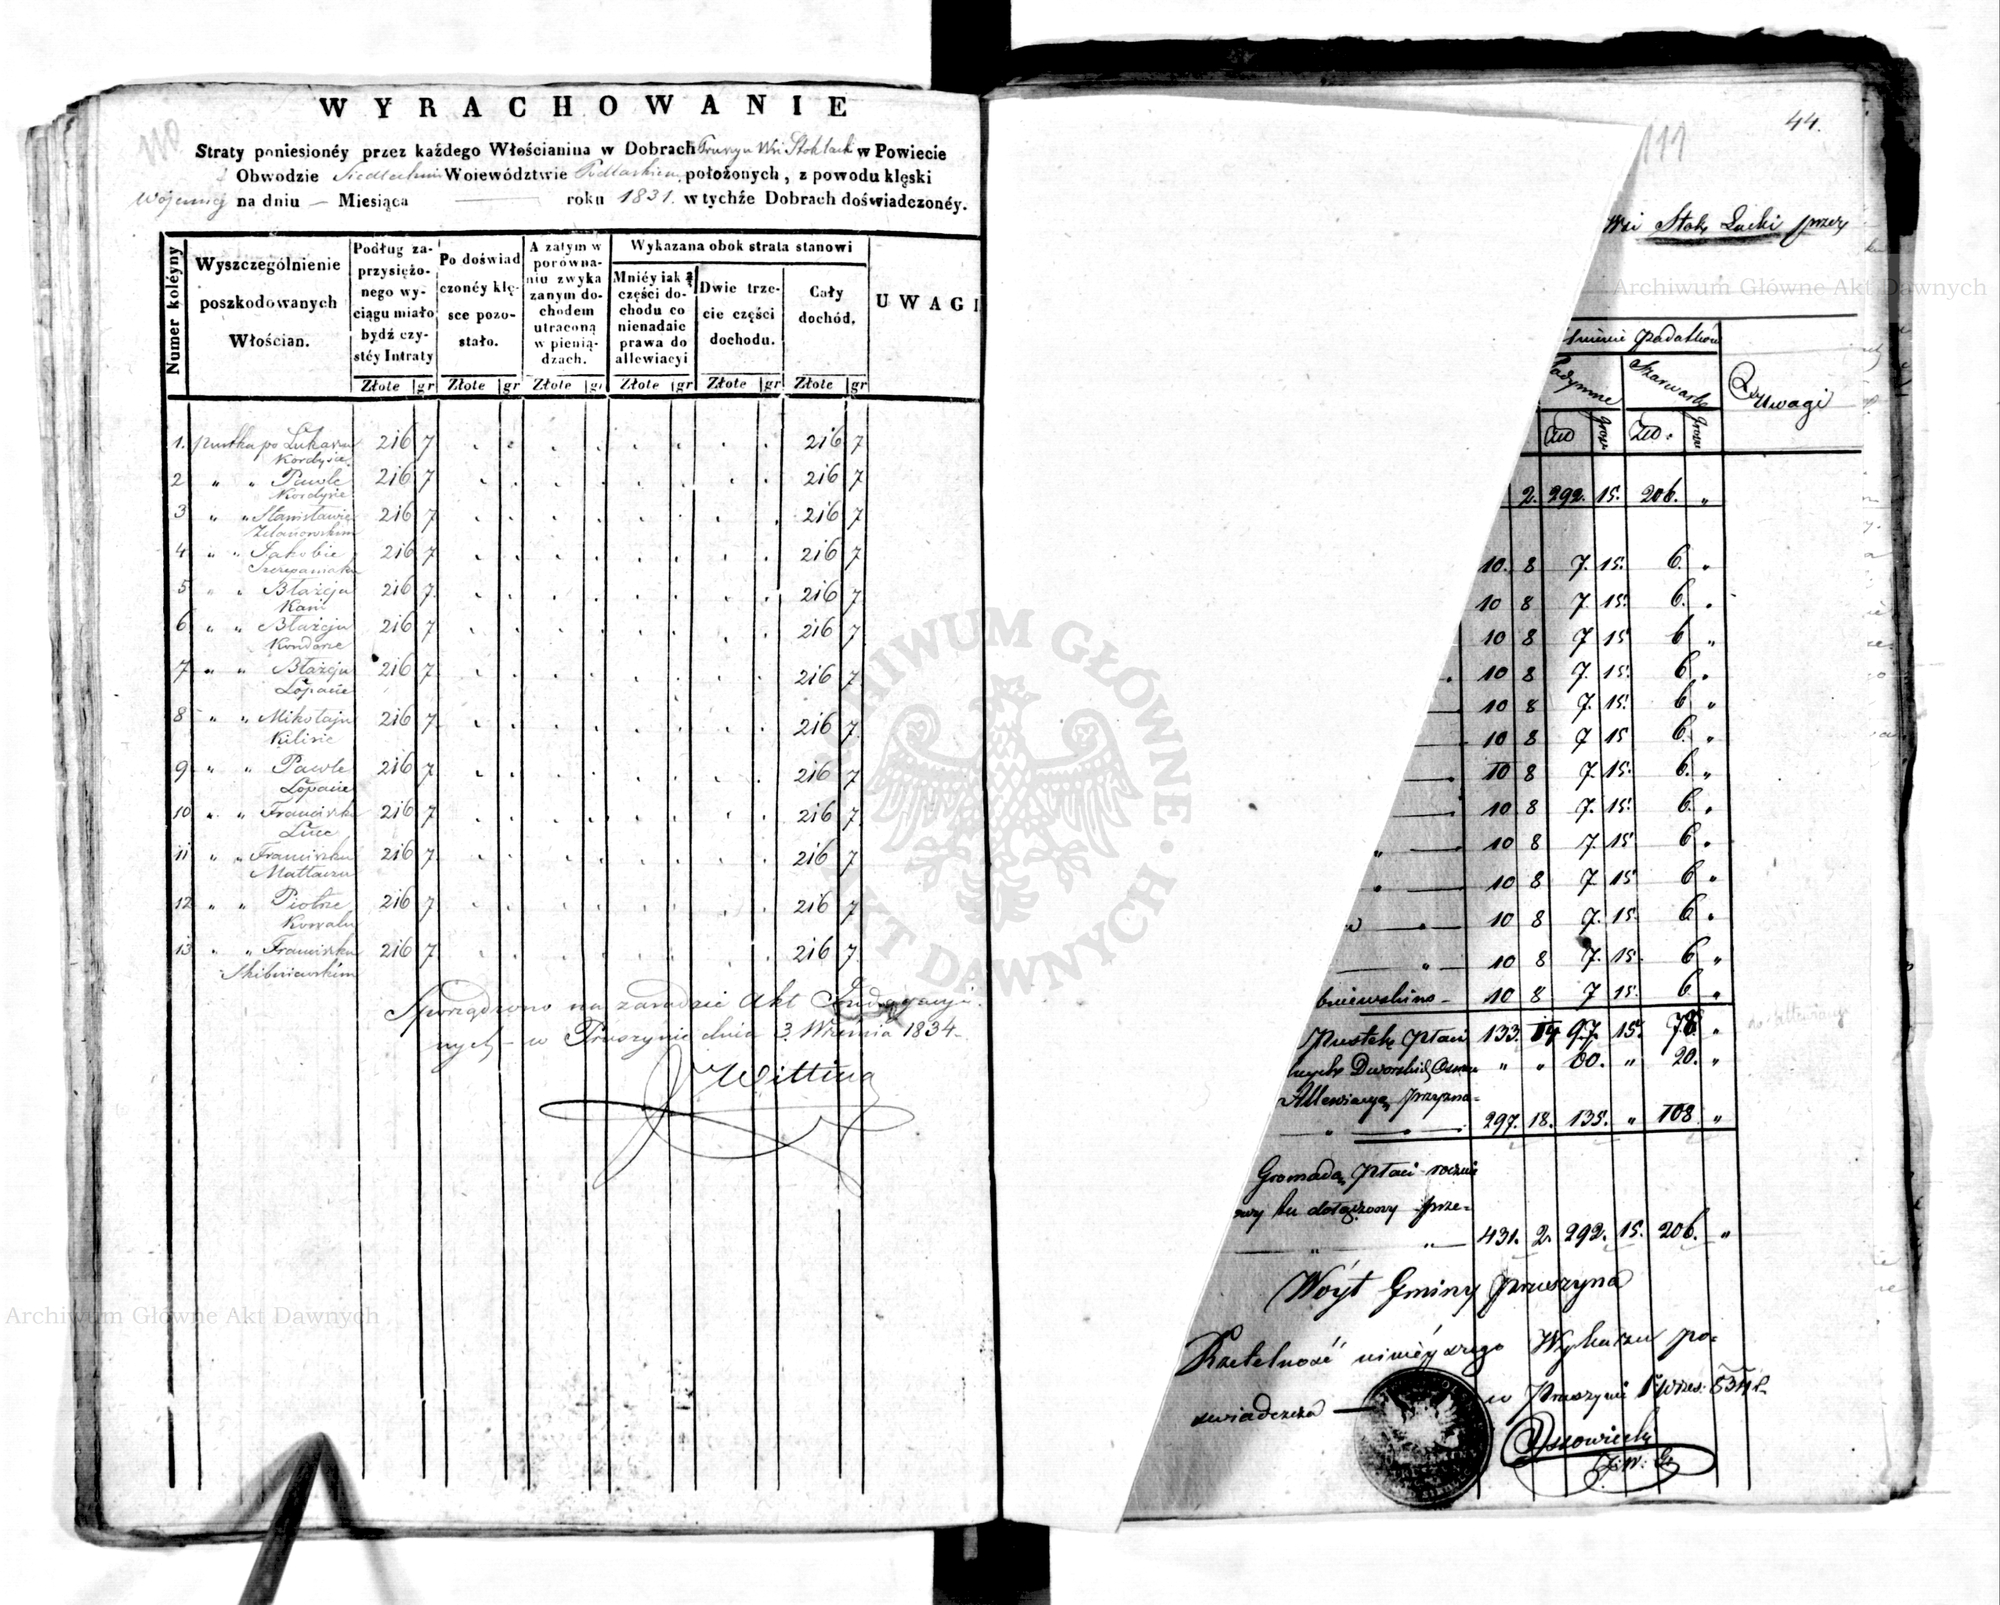 WYRACHOWANIE
Straty poniesionéy przez każdego Włościanina w Dobrach Pruszyn Wsi Stok Lack w Powiecie
Obwodzie Siedleckim Woiewództwie Podlaskiem położonych, z powodu klęski
Wojennej na dniu — Miesiąca — roku 1831. w tychże Dobrach doświadczonéy.
Numer koléyny
Wyszczególnienie
poszkodowanych
Włościan.
Podług za-
przysiężo-
nego wy-
ciągu miało
bydź czy-
stéy Intraty
Po doświad
czonéy klę-
sce pozo-
stało.
A zatym w
porówna-
niu z wyka
zanym do-
chodem
utraconą
w pienią-
dzach.
Wykazana obok strata stanowi
Mniéy iak ⅔
części do-
chodu co
nienadaie
prawa do
allewiacyi
Dwie trze-
cie części
dochodu.
Cały
dochód.
UWAGI
Złote gr Złote gr Złote gr Złote gr Złote gr Złote gr
1. pustka po Łukaszu 216 7 216 7
Kordysie
2 " " Pawle 216 7 216 7
Kordysie
3 " " Stanisławie 216 7 216 7
4 " " Jakóbie 216 7 216 7
Szczepaniaku
5 " " Błażeju 216 7 216 7
Kani
6 " " Błażeju 216 7 216 7
Kondorze
7 " " Błażeju 216 7 216 7
Łopacie
8 " " Mikołaju 216 7 216 7
Kilisie
9 " " Pawle 216 7 216 7
Łopacie
10 " " Franciszku 216 7 216 7
Luce
11 " " Franciszku 216 7 216 7
Mattaczu
12 " " Piotrze 216 7 216 7
Kowalu
13 " " Franciszku 216 7 216 7
Skibniewskim
Sporządzono na zasadzie Akt Indagacyi-
nych — w Pruszynie dnia 3. Września 1834.
Witting
44.
111
Wsi Stok Lacki przez
Podatków
Podymne
Szarwark
Uwagi
Zło Grosz Zło. Grosz
2. 292. 15. 206. "
10. 8 7. 15. 6. "
10 8 7. 15. 6. "
10 8 7. 15 6 "
10 8 7. 15. 6. "
10 8 7. 15. 6 "
10 8 7 15 6. "
10 8 7. 15. 6. "
10 8 7. 15. 6. "
10 8 7. 15 6 "
10 8 7 15 6 "
10 8 7. 15. 6. "
10 8 7. 15. 6 "
bniewskim — 10 8 7 15. 6 "
Pustek płaci 133. 14 97. 15. 78. "
Dworskich " " 60. " 20. "
Allewiacyą przyzna-
297. 18. 135. " 108 "
Gromada płaci rocznie
tu dołączony prze-
431. 2. 292. 15. 206. "
Wóyt Gminy Pruszyna
Rzetelność ninieyszego Wykazu po-
swiadcza — w Pruszynie 1 Wrześ: 834 r.
Ossowiecki
Z. W. G.
Archiwum Główne Akt Dawnych
ARCHIWUM GŁÓWNE AKT DAWNYCH
Archiwum Główne Akt Dawnych